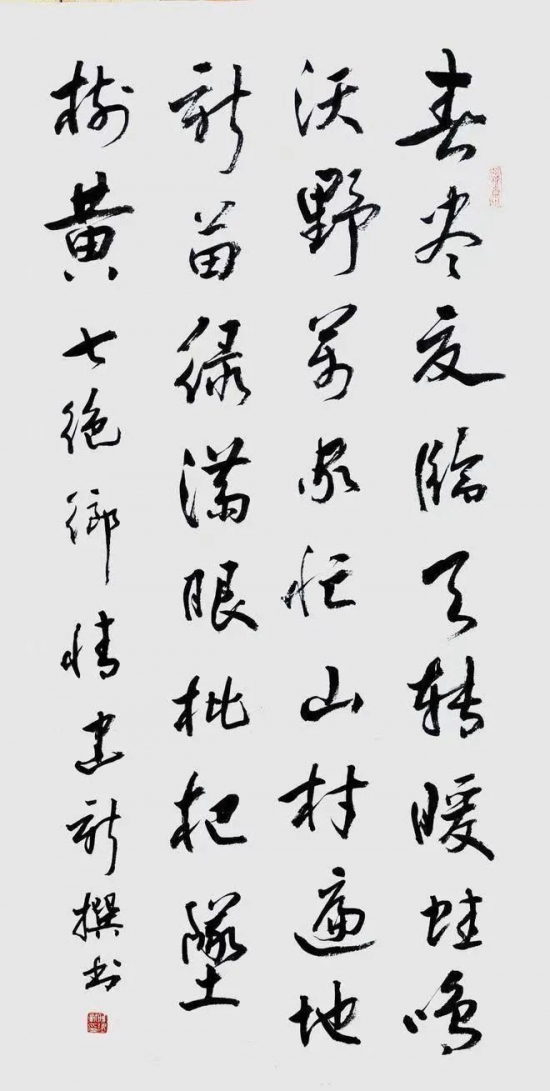 春尽夏临天转暖蛙鸣
沃野万家忙山村遍地
新苗绿满眼枇杷坠
树黄七绝乡情建新撰书